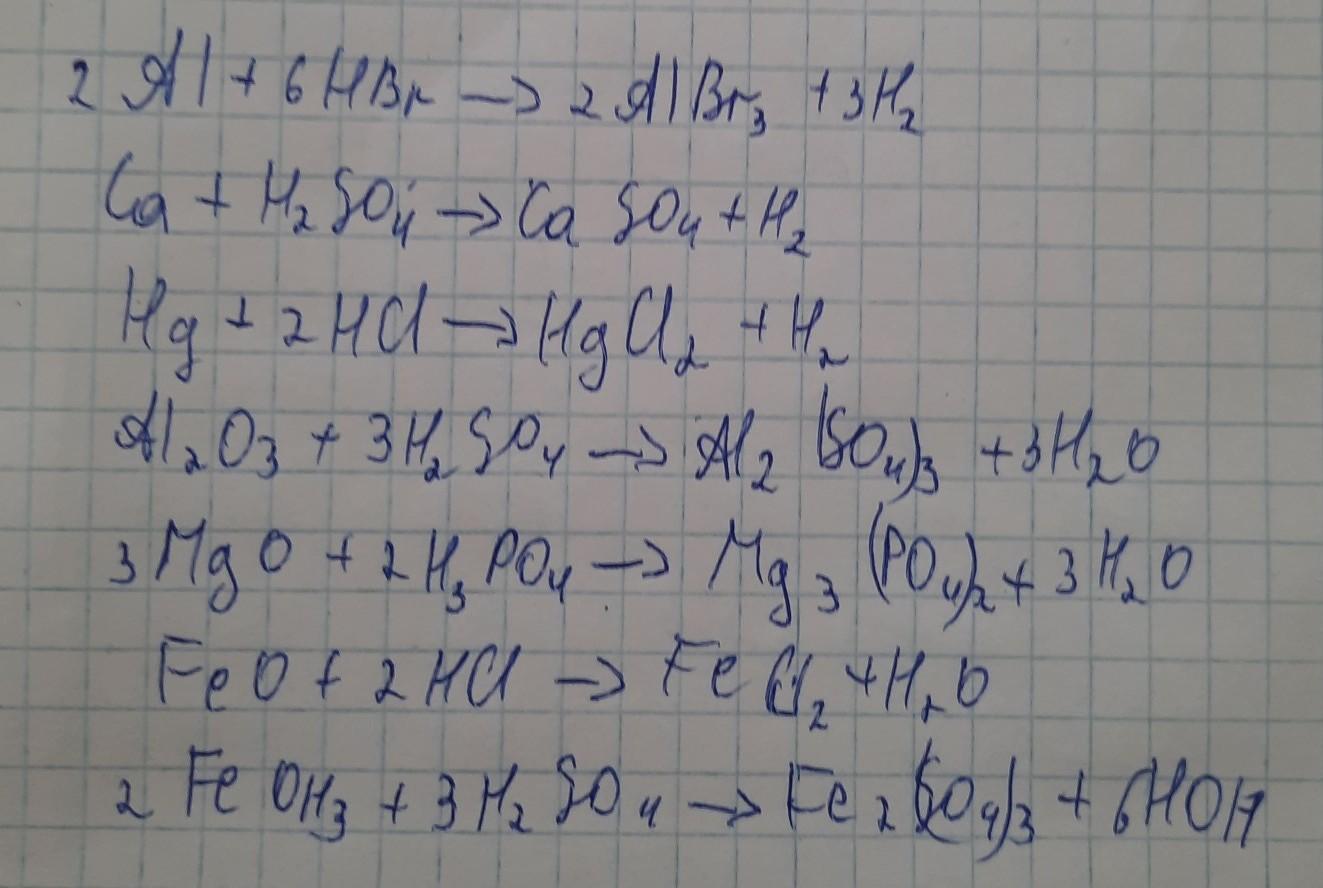 2 Al + 6HBr → 2 AlBr₃ + 3H₂
Ca + H₂SO₄ → Ca SO₄ + H₂
Hg + 2HCl → HgCl₂ + H₂
Al₂O₃ + 3H₂SO₄ → Al₂ (SO₄)₃ + 3H₂O
3MgO + 2H₃PO₄ → Mg₃ (PO₄)₂ + 3H₂O
FeO + 2HCl → FeCl₂ + H₂O
2 FeOH₃ + 3H₂SO₄ → Fe₂(SO₄)₃ + 6HOH